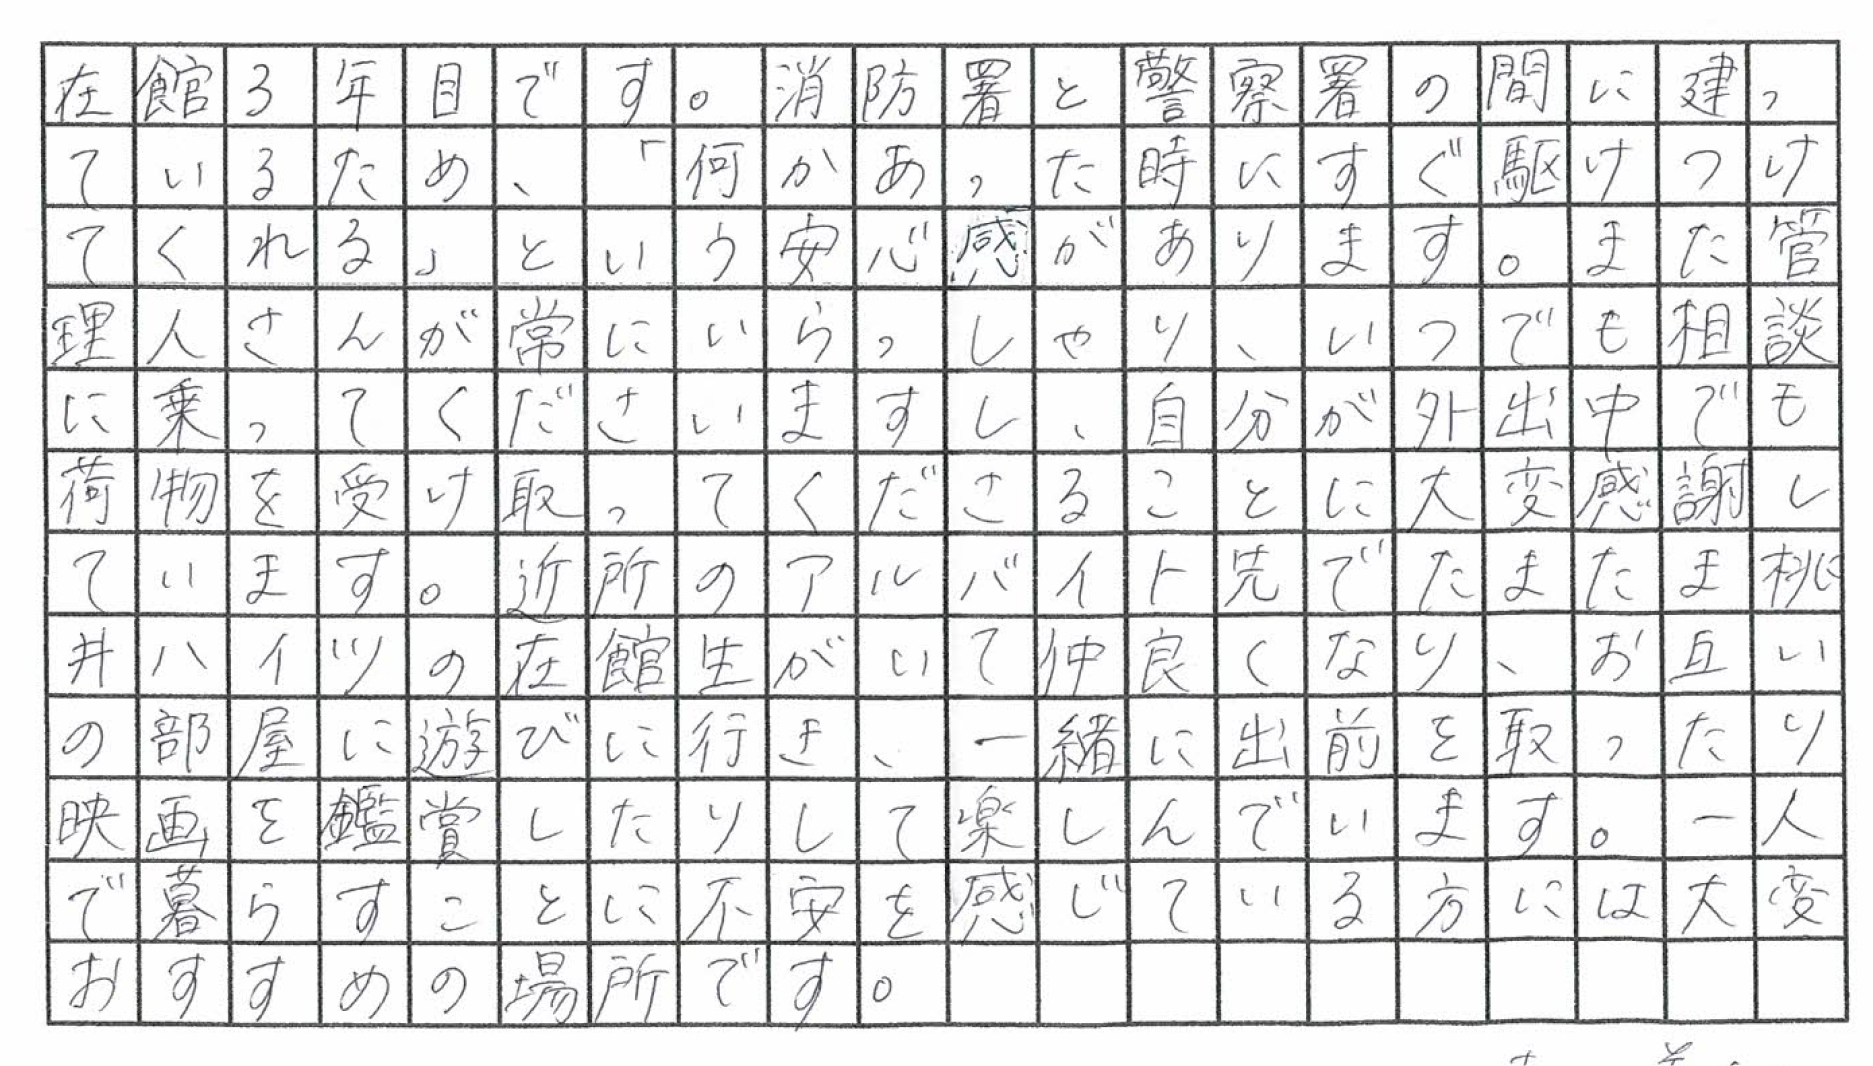 在館3年目です。消防署と警察署の間に建っ
ているため、「何かあった時にすぐ駆けつけ
てくれる」という安心感があります。また管
理人さんが常にいらっしゃり、いつでも相談
に乗ってくださいますし、自分が外出中でも
荷物を受け取ってくださることに大変感謝し
ています。近所のアルバイト先でたまたま桃
井ハイツの在館生がいて仲良くなり、お互い
の部屋に遊びに行き、一緒に出前を取ったり
映画を鑑賞したりして楽しんでいます。一人
で暮らすことに不安を感じている方には大変
おすすめの場所です。